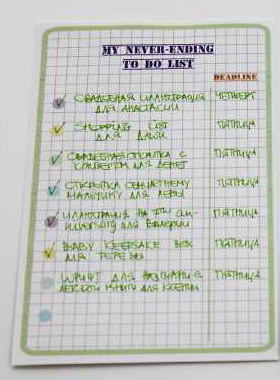 MY NEVER-ENDING
TO DO LIST
DEADLINE
СВАДЕБНАЯ ИЛЛЮСТРАЦИЯ ЧЕТВЕРГ
ДЛЯ АНАСТАСИИ
SHOPPING LIST ПЯТНИЦА
ДЛЯ ДАШИ
СВАДЕБНАЯ ОТКРЫТКА С ПЯТНИЦА
КОНВЕРТОМ ДЛЯ ДЕНЕГ
ОТКРЫТКА СЕМИЛЕТНЕМУ ПЯТНИЦА
МАЛЬЧИКУ ДЛЯ ЛЕНЫ
ИЛЛЮСТРАЦИЯ НА ПЯТНИЦА
ДЛЯ ВАЛЕРИИ
BABY KEEPSAKE BOX ПЯТНИЦА
ДЛЯ ТЕРЕЗЫ
ШРИФТ ДЛЯ НАЗВАНИЯ ПЯТНИЦА
ДЕТСКОЙ КНИГИ ДЛЯ